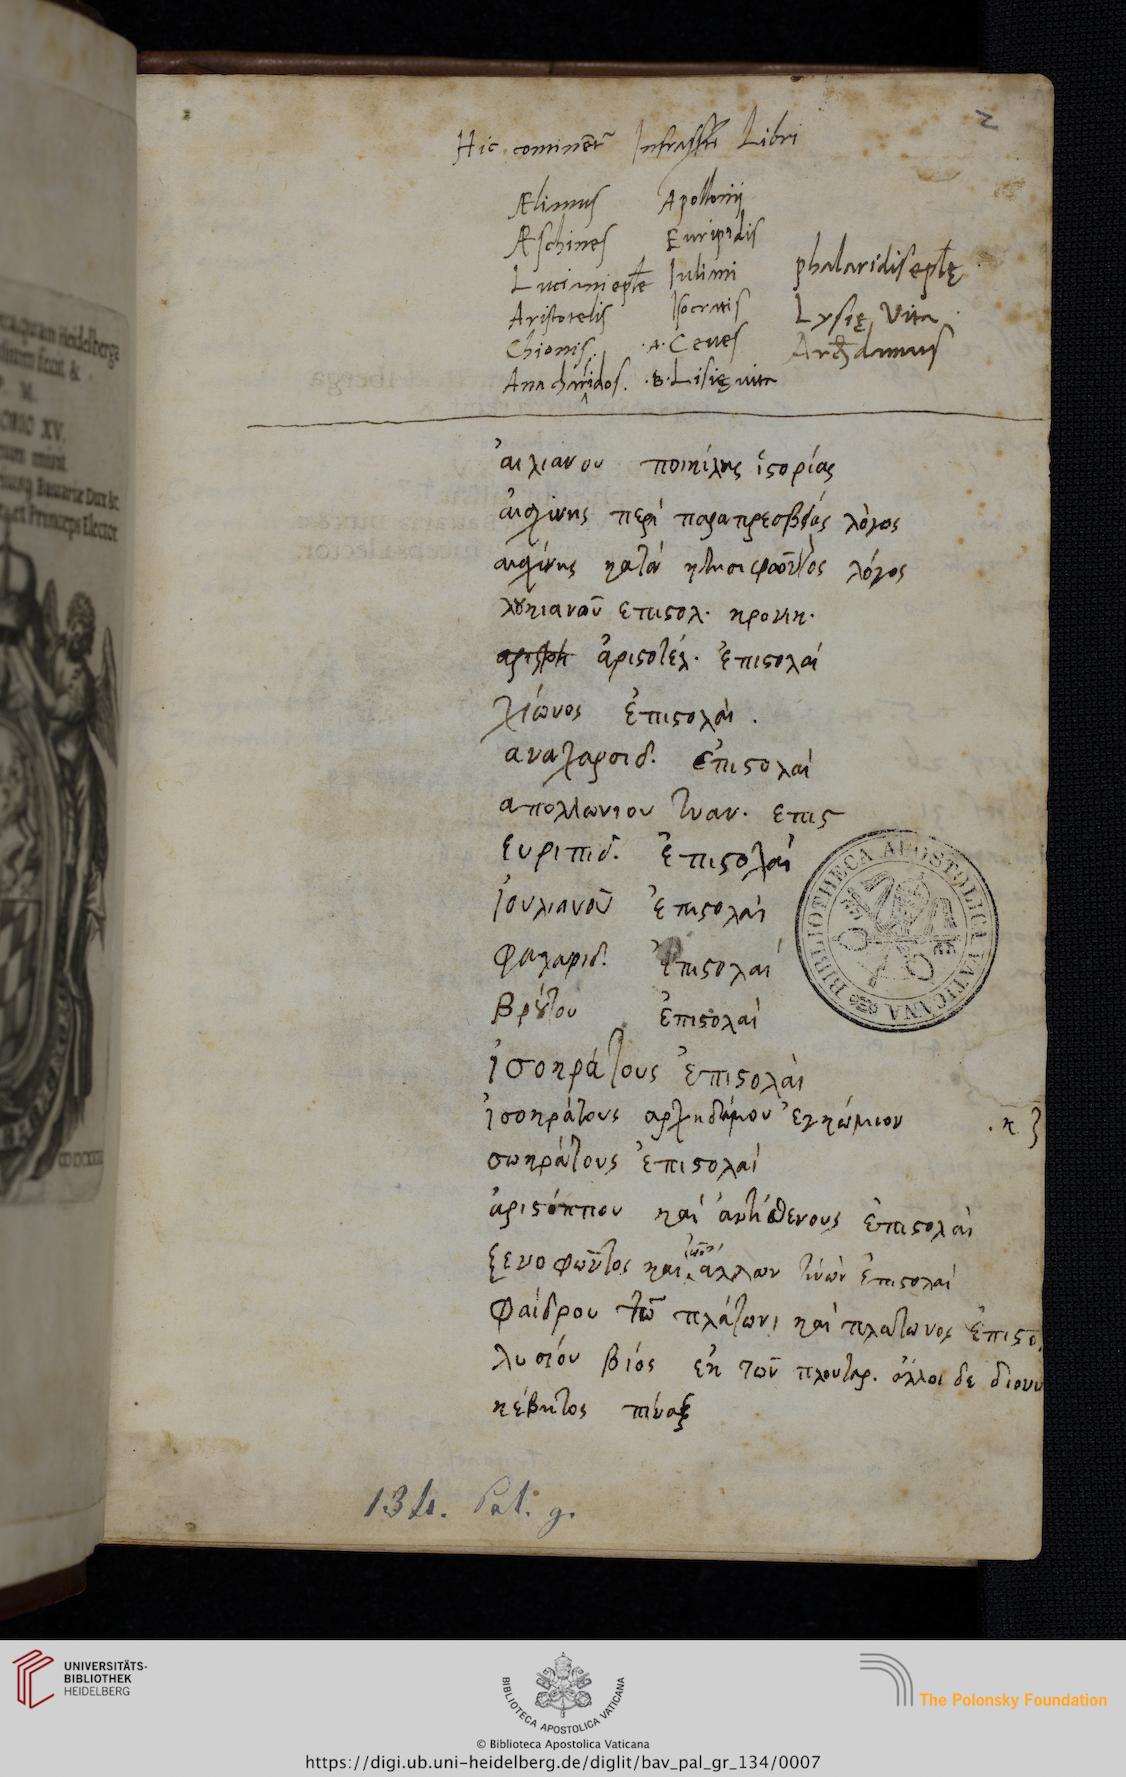 2
Hic continẽtr Infrascti Libri
Ælianus Apollonij
Æschines Euripidis
Luciani eptłe Iuliani phalaridis eptłę
Aristotelis Isocratis Lysię Vita
Chionis. .A. Ceues Archdamus
Anacharidos. .B. Lisię vita
ἀιλιανου ποικίλης ἱϛορίας
ἀισχίνης περὶ παραπρεσβείας λόγος
αισχίνης κατὰ κτησιφῶντος λόγος
λουκιανοῦ επιϛολ. κρονικ.
ἀριϛοτέλ. ἐπιϛολαί
χίωνος ἐπιϛολαὶ.
αναχαρσιδ. ἐπιϛολαί
απολλωνιου τυαν. επιϛ
ευριπιδ. ἐπιϛολαί
ἰουλιανοῦ ἐπιϛολαὶ
φαλαριδ. ἐπιϛολαί
βρούτου ἐπιϛολαί
ἰσοκράτους ἐπιϛολὰι
ἰσοκράτους αρχιδάμου ἐγκώμιον
σωκράτους ἐπιϛολαί
ἀριϛίππου καὶ ἀντισθενους ἐπιϛολαὶ
ξενοφῶντος και ἄλλων τινῶν ἐπιϛολαί
φαίδρου τῶ πλάτωνι καὶ πλατωνος ἐπιϛο
λυσίου βίος ἐκ τῶν πλουταρ. ἄλλοι δε διονυ
κέβητος πίναξ
BIBLIOTHECA APOSTOLICA VATICANA
134. Pal. g.
UNIVERSITÄTS-
BIBLIOTHEK
HEIDELBERG
BIBLIOTECA APOSTOLICA VATICANA
The Polonsky Foundation
© Biblioteca Apostolica Vaticana
https://digi.ub.uni-heidelberg.de/diglit/bav_pal_gr_134/0007